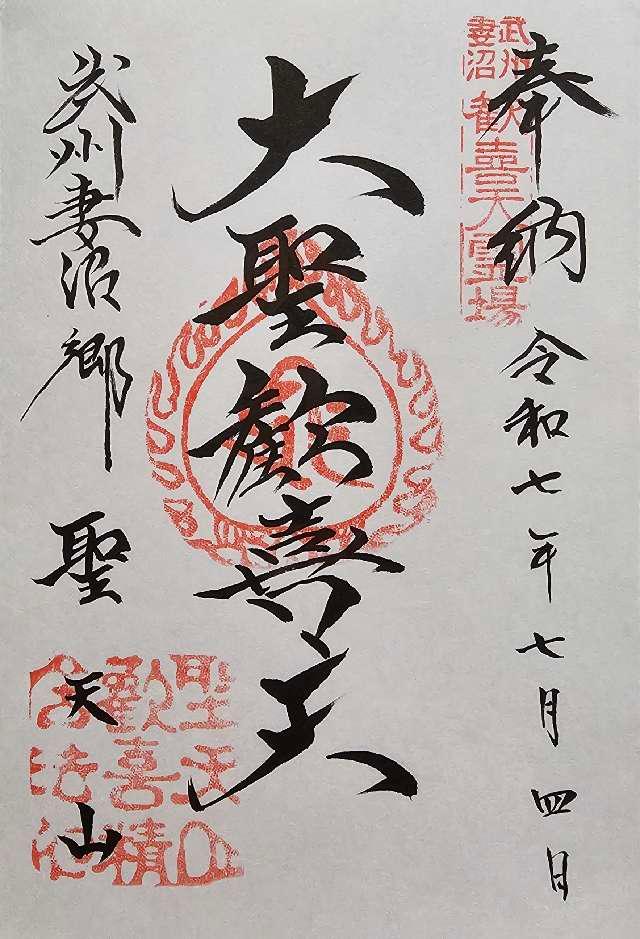 奉納
令和七年七月四日
武州妻沼
歓喜天霊場
大聖歓喜天
武州妻沼郷
聖天山
聖天山
歓喜精
舎法印